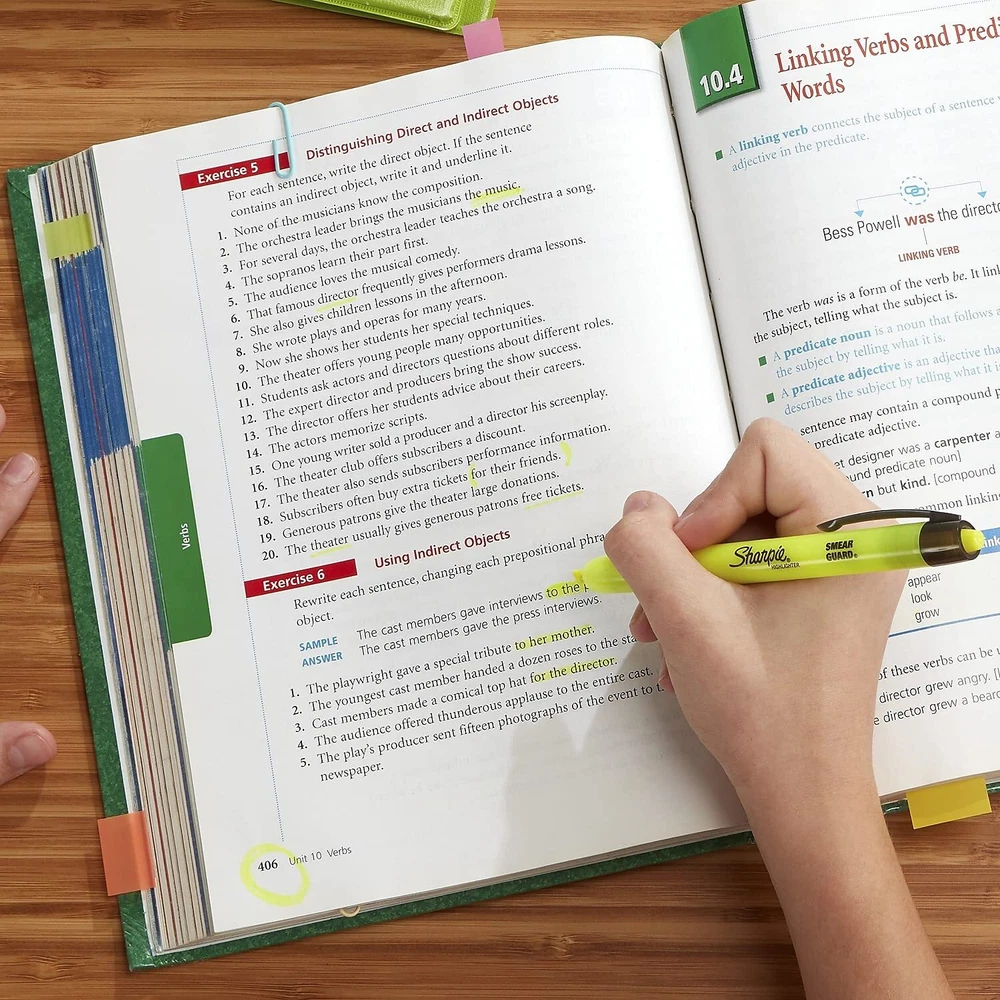 Exercise 5
Distinguishing Direct and Indirect Objects
For each sentence, write the direct object. If the sentence
contains an indirect object, write it and underline it.
1. None of the musicians know the composition.
2. The orchestra leader brings the musicians the music.
3. For several days, the orchestra leader teaches the orchestra a song.
4. The sopranos learn their part first.
5. The audience loves the musical comedy.
6. That famous director frequently gives performers drama lessons.
7. She also gives children lessons in the afternoon.
8. She wrote plays and operas for many years.
9. Now she shows her students her special techniques.
10. The theater offers young people many opportunities.
11. Students ask actors and directors questions about different roles.
12. The expert director and producers bring the show success.
13. The director offers her students advice about their careers.
14. The actors memorize scripts.
15. One young writer sold a producer and a director his screenplay.
16. The theater club offers subscribers a discount.
17. The theater also sends subscribers performance information.
18. Subscribers often buy extra tickets for their friends.
19. Generous patrons give the theater large donations.
20. The theater usually gives generous patrons free tickets.
Exercise 6
Using Indirect Objects
Rewrite each sentence, changing each prepositional
object.
SAMPLE The cast members gave interviews to the
ANSWER The cast members gave the press interviews.
1. The playwright gave a special tribute to her mother.
2. The youngest cast member handed a dozen roses to the
3. Cast members made a comical top hat for the director.
4. The audience offered thunderous applause to the entire cast.
5. The play's producer sent fifteen photographs of the event to
newspaper.
406 Unit 10 Verbs
Verbs
10.4
Linking Verbs and
Words
A linking verb connects the subject of a sentence
adjective in the predicate.
Bess Powell was the
LINKING VERB
The verb was is a form of the verb be. It
the subject, telling what the subject is.
A predicate noun is a noun that follows a
the subject by telling what it is.
A predicate adjective is an adjective
describes the subject by telling what it
sentence may contain a compound
predicate adjective.
designer was a carpenter
predicate noun]
but kind. [compound
linking
appear
look
grow
of these verbs can be
director grew angry.
director grew a
Sharpie® HIGHLIGHTER SMEAR GUARD®